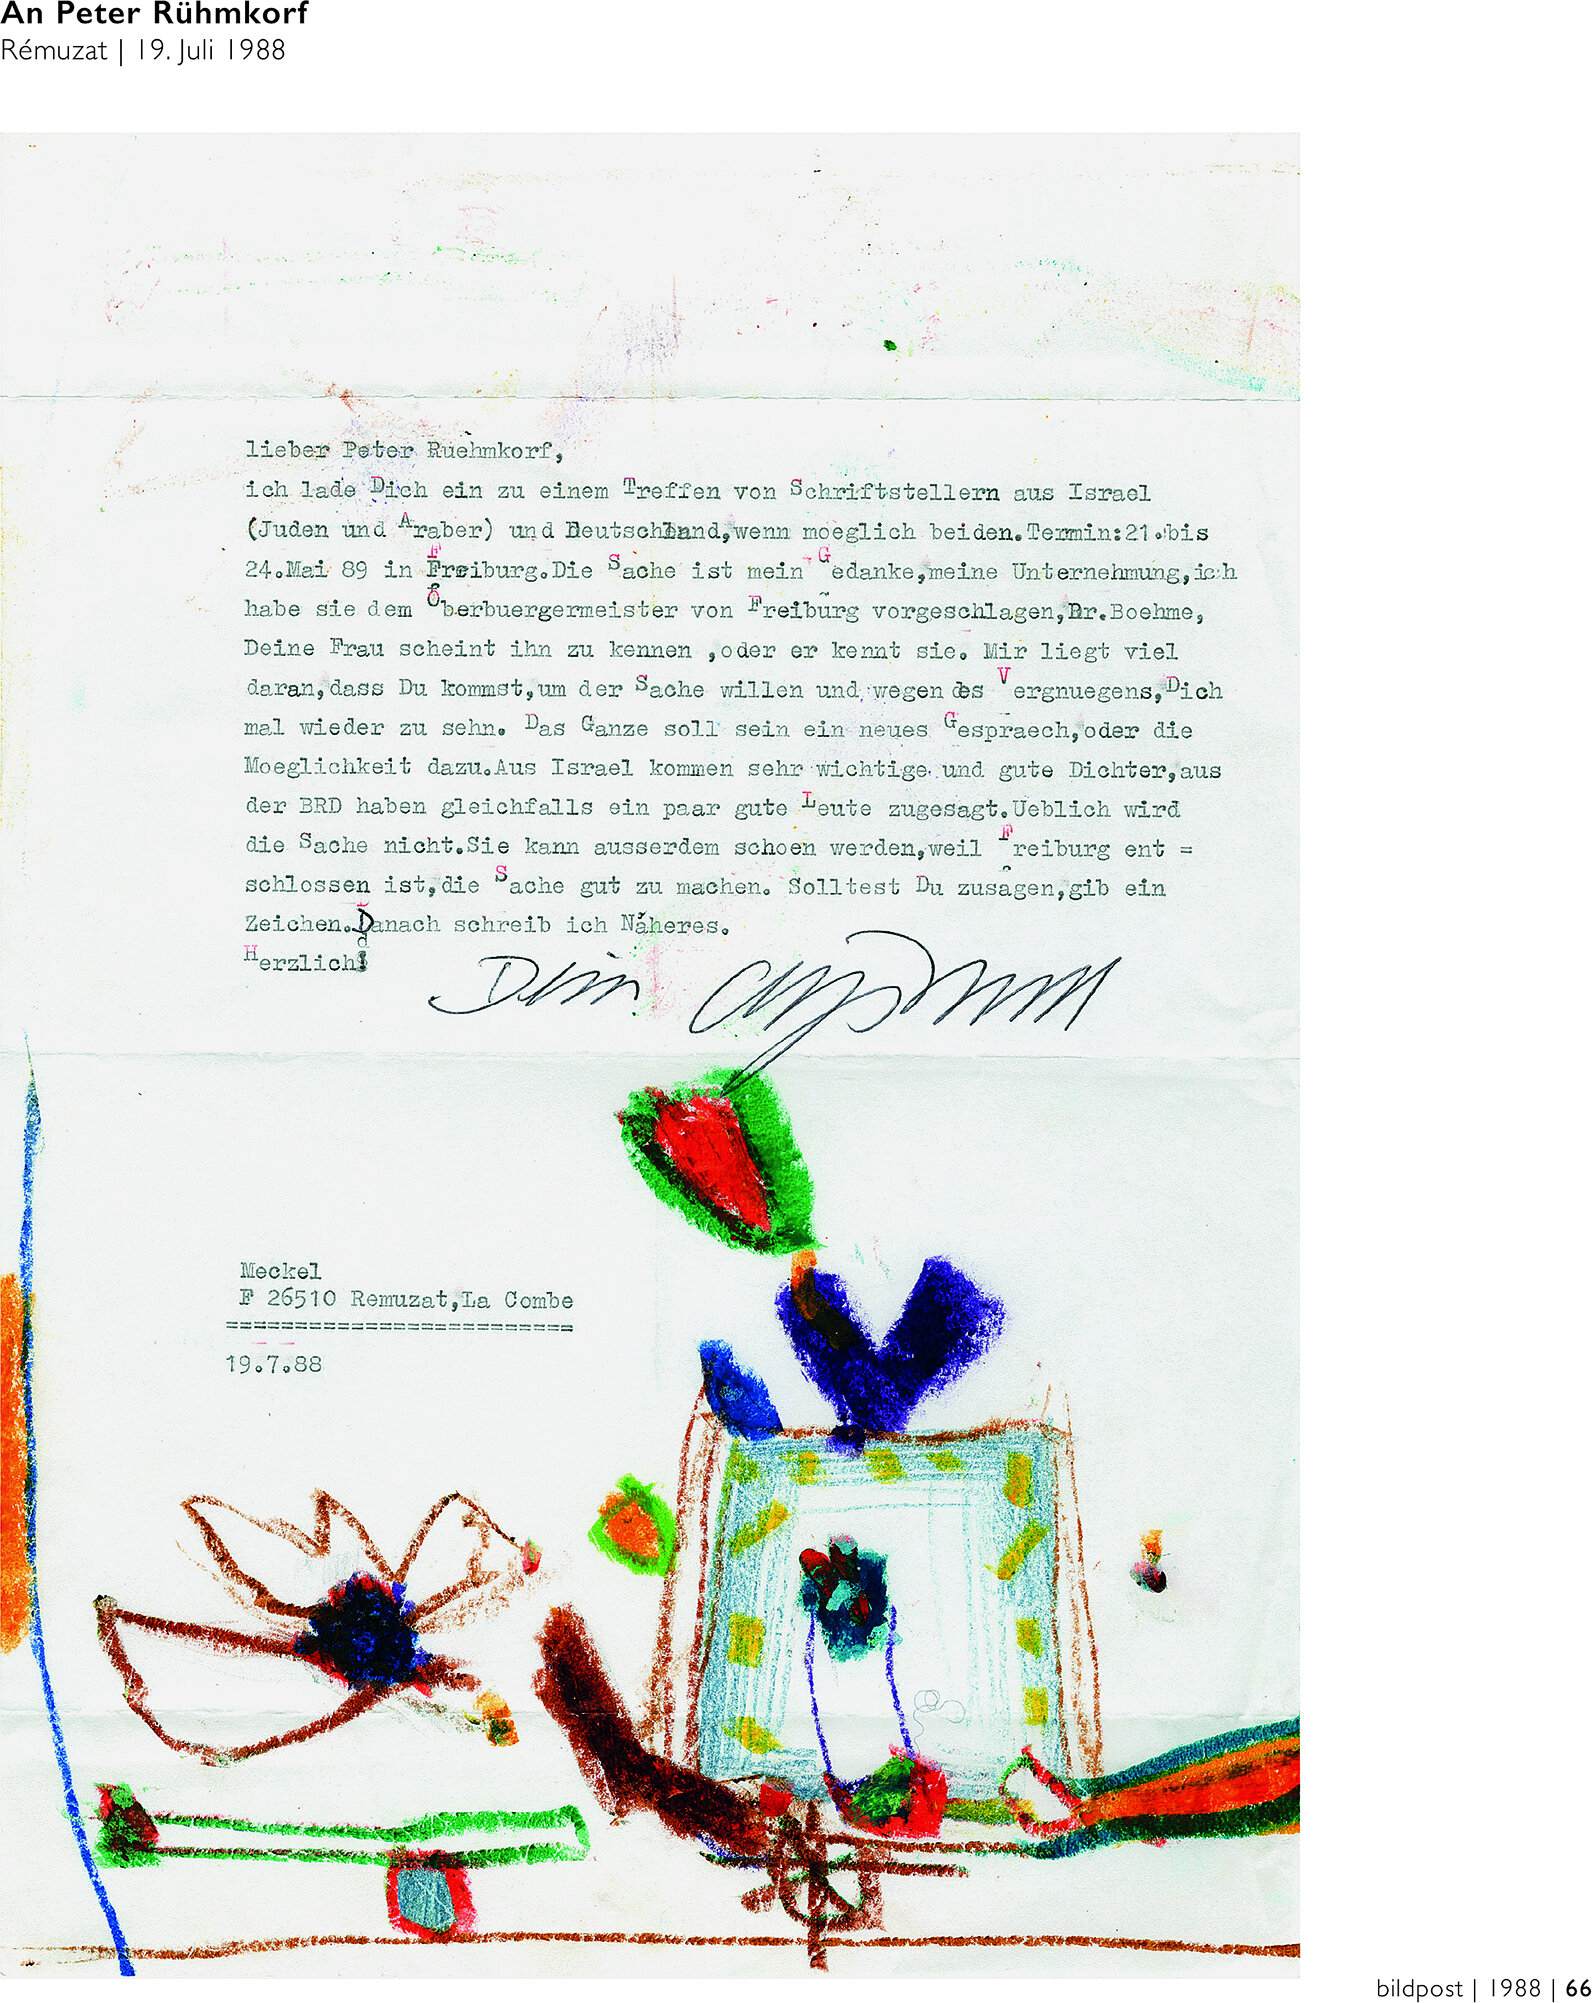 An Peter Rühmkorf
Rémuzat | 19. Juli 1988
lieber Peter Ruehmkorf,
ich lade Dich ein zu einem Treffen von Schriftstellern aus Israel
(Juden und Araber) und Deutschland,wenn moeglich beiden.Termin:21.bis
24.Mai 89 in Freiburg.Die Sache ist mein Gedanke,meine Unternehmung,ich
habe sie dem Oberbuergermeister von Freiburg vorgeschlagen,Dr.Boehme,
Deine Frau scheint ihn zu kennen ,oder er kennt sie. Mir liegt viel
daran,dass Du kommst,um der Sache willen und wegen des Vergnuegens,Dich
mal wieder zu sehn. Das Ganze soll sein ein neues Gespraech,oder die
Moeglichkeit dazu.Aus Israel kommen sehr wichtige und gute Dichter,aus
der BRD haben gleichfalls ein paar gute Leute zugesagt.Ueblich wird
die Sache nicht.Sie kann ausserdem schoen werden,weil Freiburg ent =
schlossen ist,die Sache gut zu machen. Solltest Du zusagen,gib ein
Zeichen.Danach schreib ich Näheres.
Herzlich!
Dein
Meckel
F 26510 Remuzat,La Combe
==========================
19.7.88
bildpost | 1988 | 66